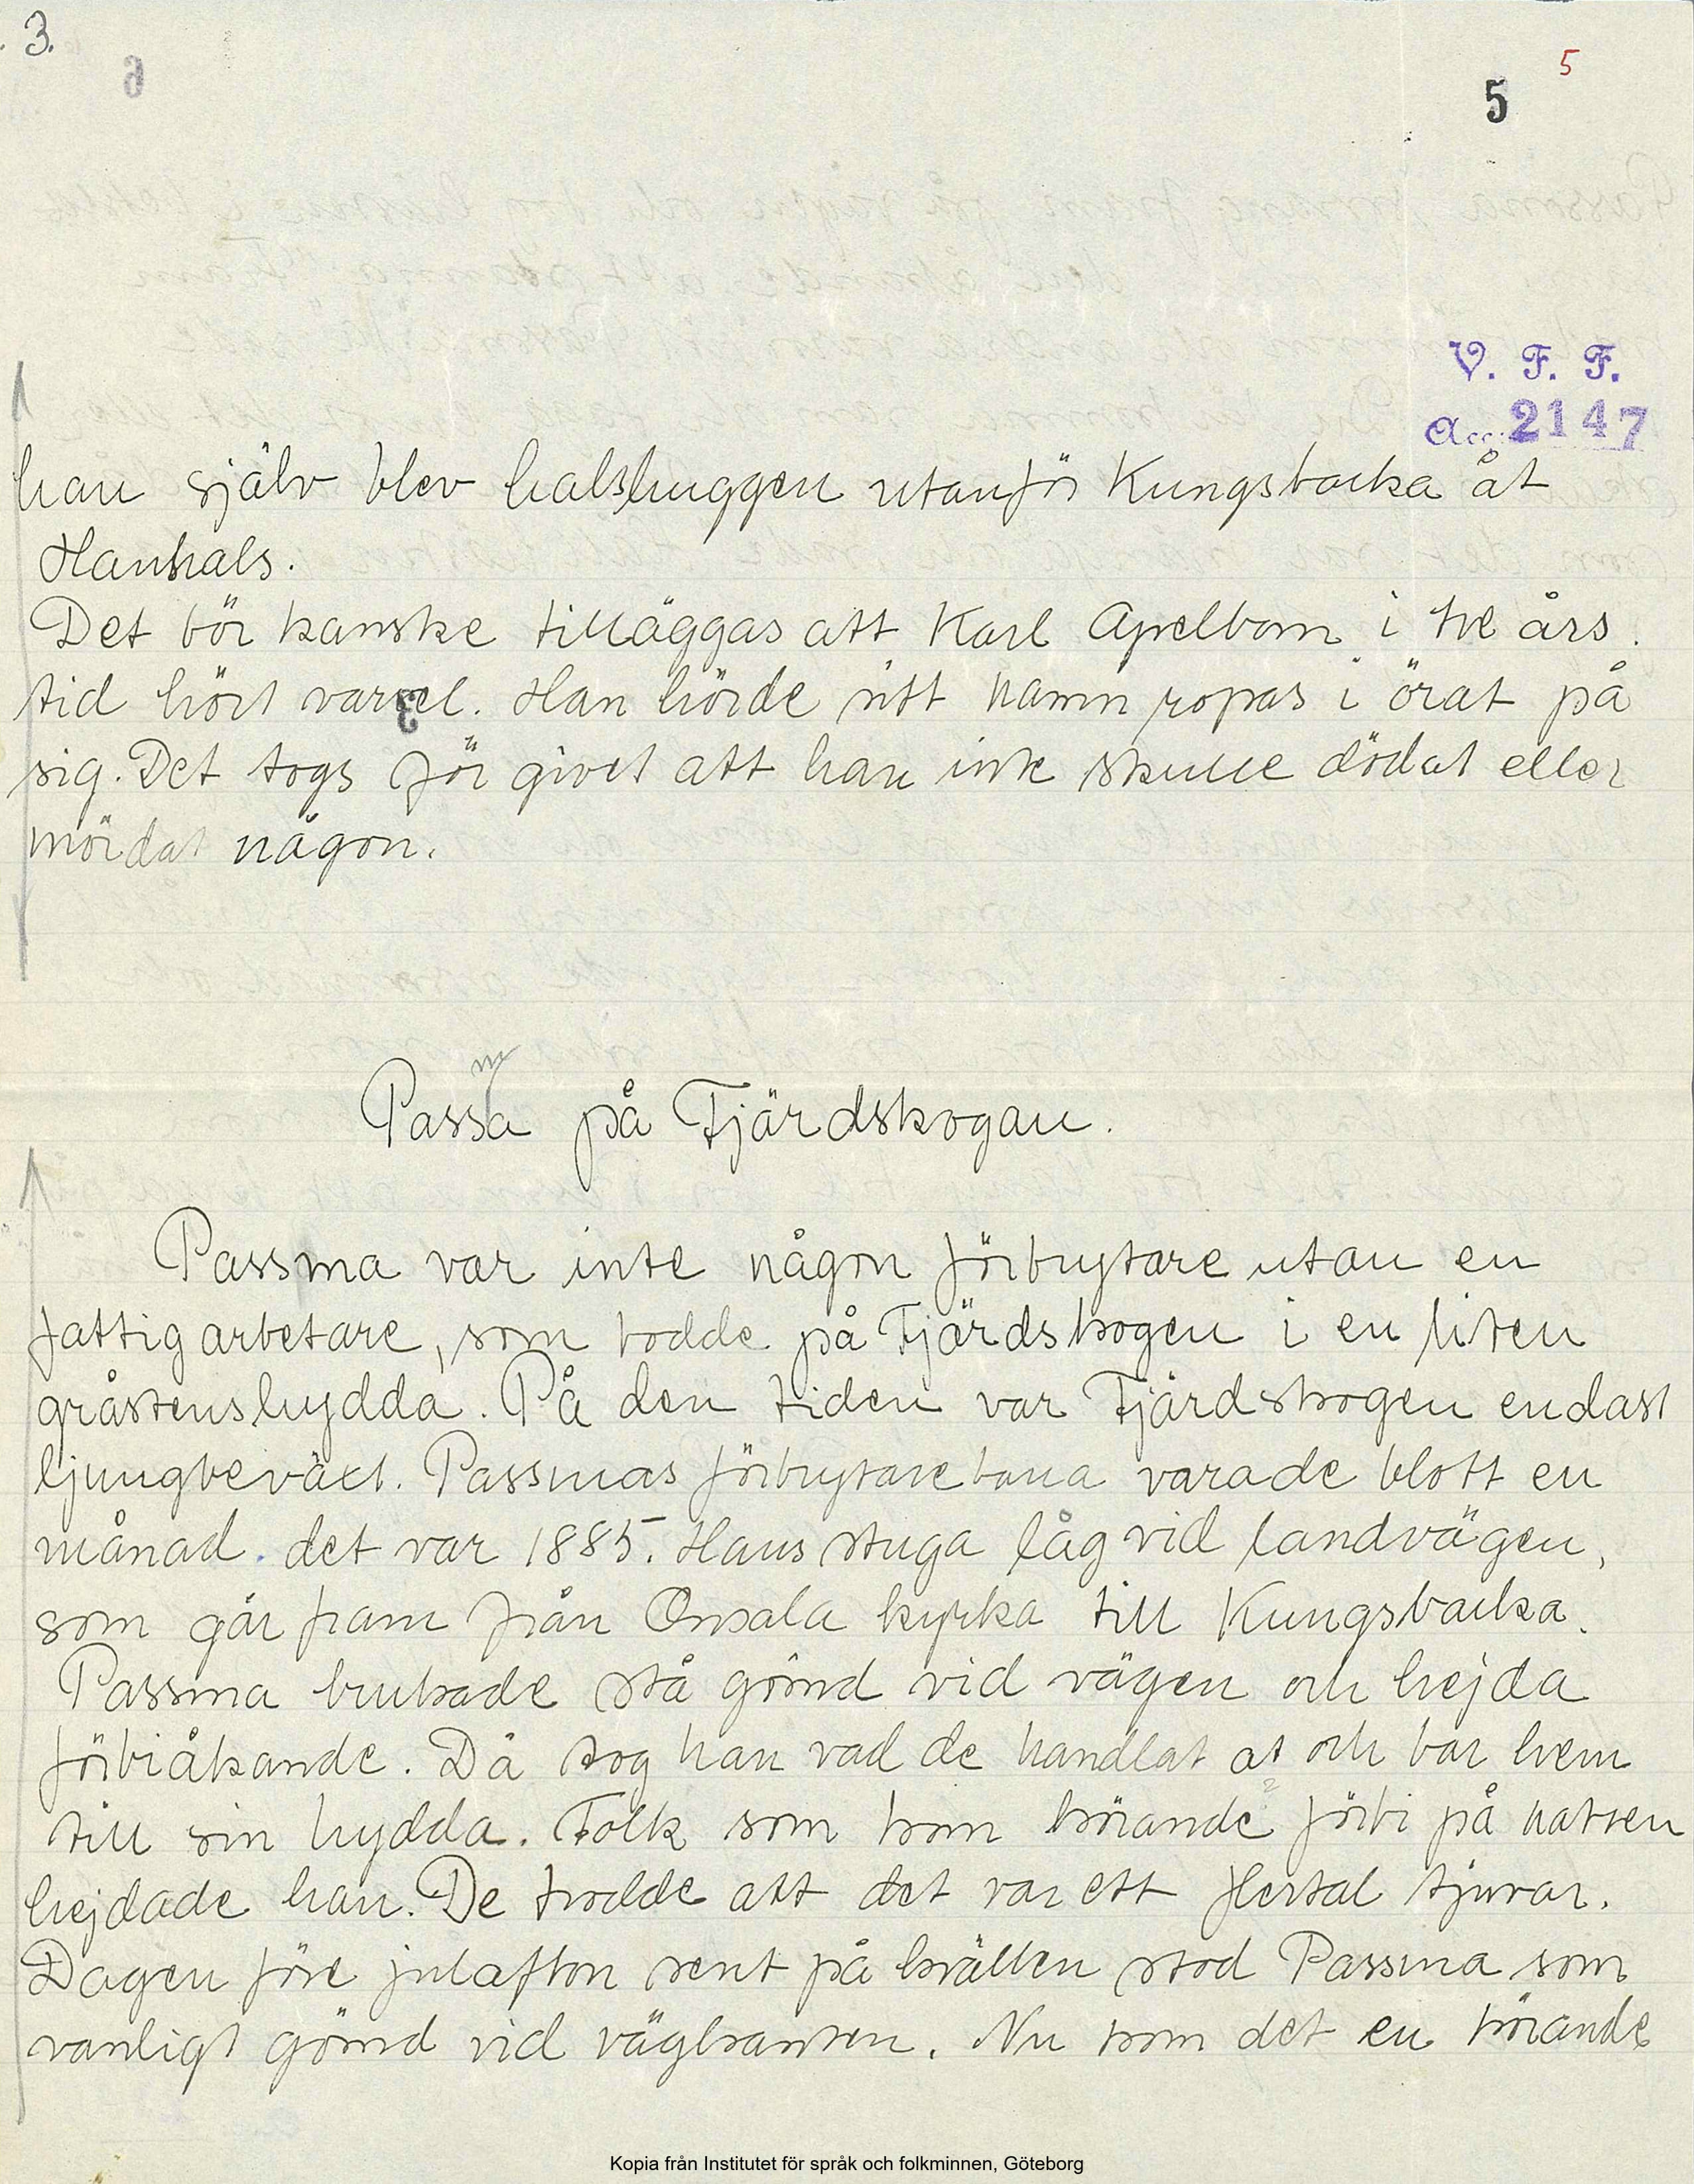 3.
5
5
V. F. F.
Acc: 2147
han själv blev halshuggen utanför Kungsbacka åt
Hanhals.
Det bör kanske tilläggas att Karl Apelbom i tre års
tid hört varsel. Han hörde sitt namn ropas i örat på
sig. Det togs för givet att han inte skulle dödat eller
mördat någon.
Passma på Fjärdskogan.
Passma var inte någon förbrytare utan en
fattig arbetare, som bodde på Fjärdskogen i en liten
gråstenshydda. På den tiden var Fjärdskogen endast
ljungbeväxt. Passmas förbrytarebana varade blott en
månad. det var 1885. Hans stuga låg vid landvägen,
som går fram från Onsala kyrka till Kungsbacka.
Passma brukade stå gömd vid vägen och hejda
förbiåkande. Då tog han vad de handlat at och bar hem
till sin hydda. Folk som kom körande förbi på natten
hejdade han. De trodde att det var ett flertal tjuvar.
Dagen före julafton sent på kvällen stod Passma som
vanligt gömd vid vägkanten. Nu kom det en körande
Kopia från Institutet för språk och folkminnen, Göteborg